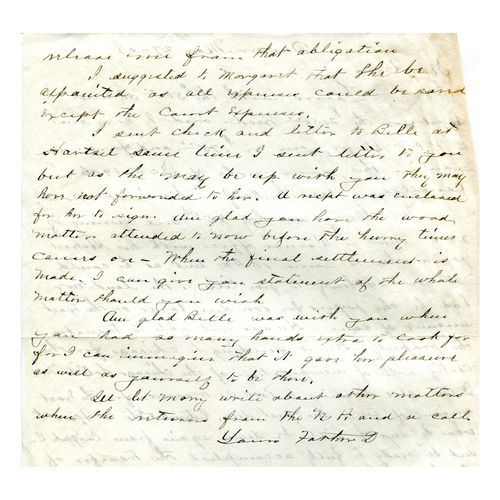 release me from that obligation
I suggested to Margaret that She be
appointed as all expenses could be saved
except the Court Expenses.
I sent check and letter to Belle at
Hartsel same time I sent letter to you
but as the may be up with you they may
have not forwarded to her. A recpt was enclosed
for her to sign. Am glad you have the wood
matter attended to now before the hurry times
comes on - When the final settlement is
Made. I can give you statement of the whole
matter should you wish
Am glad Belle was with you when
you had so many hands extra to cook for
for I can immagine that it gave her pleasure
as well as yourself to be there.
Ill let Mary write about other matters
when she returns from the and a call
Yours D